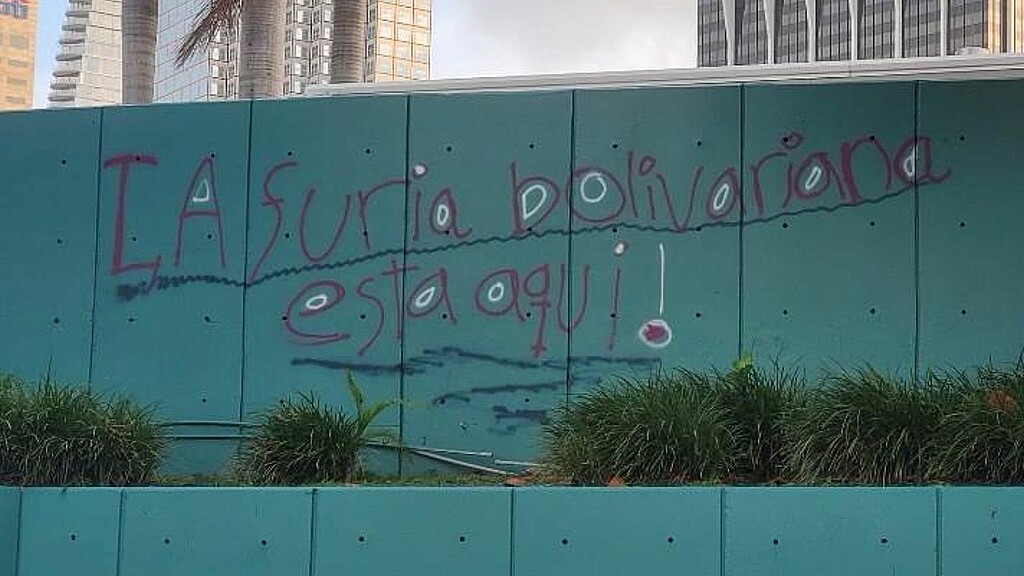 LA furia bolivariana
esta aqui!